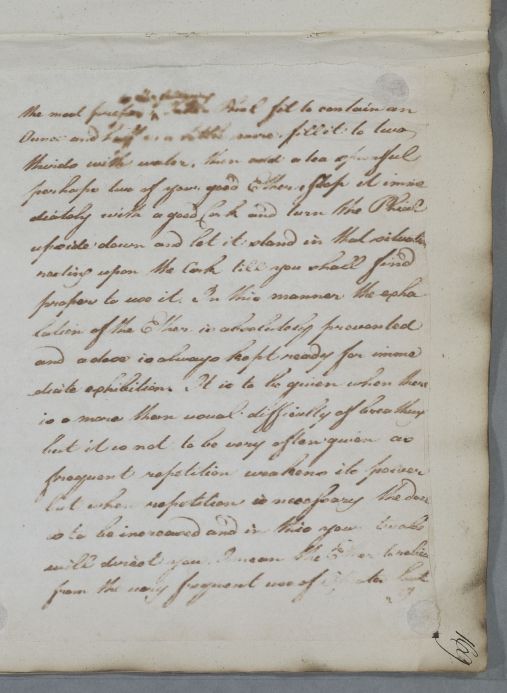 the most proper Phial fit to contain an
Ounce and half or a little more fill it to two
thirds with water, then add a tea spoonful
perhaps two of your good Ether, Stop it imme
diately with a good Cork and turn the Phial
upside down and let it stand in that situation
resting upon the Cork till you shall find
proper to use it. In this manner the exha
lation of the Ether is absolutely prevented
and a dose is always kept ready for imme
diate exhibition. It is to be given when there
is a more than usual difficulty of breathing
but it is not to be very often given as
frequent repetition weakens its power
but when repetition is necessary the dose
is to be increased and in this your
will direct you. I mean the Ether
from the very frequent use of but
169